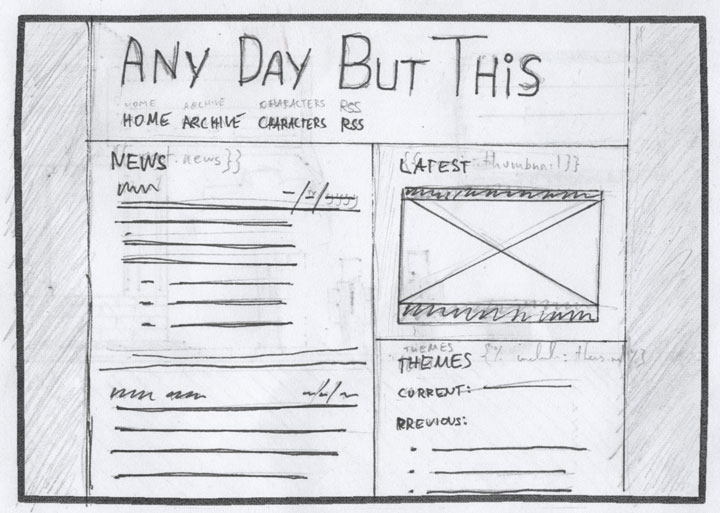 ANY DAY BUT THIS
HOME ARCHIVE CHARACTERS RSS
HOME ARCHIVE CHARACTERS RSS
NEWS .news}}
LATEST .thumbnail}}
THEMES
THEMES
CURRENT:
PREVIOUS: